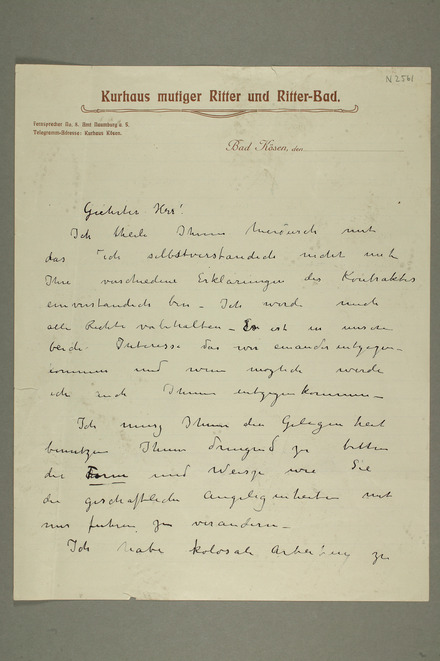 N 2561
Kurhaus mutiger Ritter und Ritter-Bad.
Fernsprecher No. 4. Amt Naumburg a. S.
Telegramm-Adresse: Kurhaus Kösen.
Bad Kösen, den
Geehrter Herr!
Ich theile Ihnen hierdurch mit
das ich selbstverstandich nicht mit
Ihre verschiedene Erklarungen des Kontraktes
einverstandich bin – Ich werde mich
alle Rechte vorbehalten – Es ist in unsere
beide Interesse das wir einander entgegen-
kommen und wenn moglich werde
ich auch Ihnen entgegenkommen –
Ich muss Ihnen die Gelegenheit
benutzen Ihnen dringend zu bitten
die Form und Weise wie Sie
die geschaftliche Angelegenheiten mit
mir fuhren, zu verandern –
Ich habe kolosale Arbeit zu